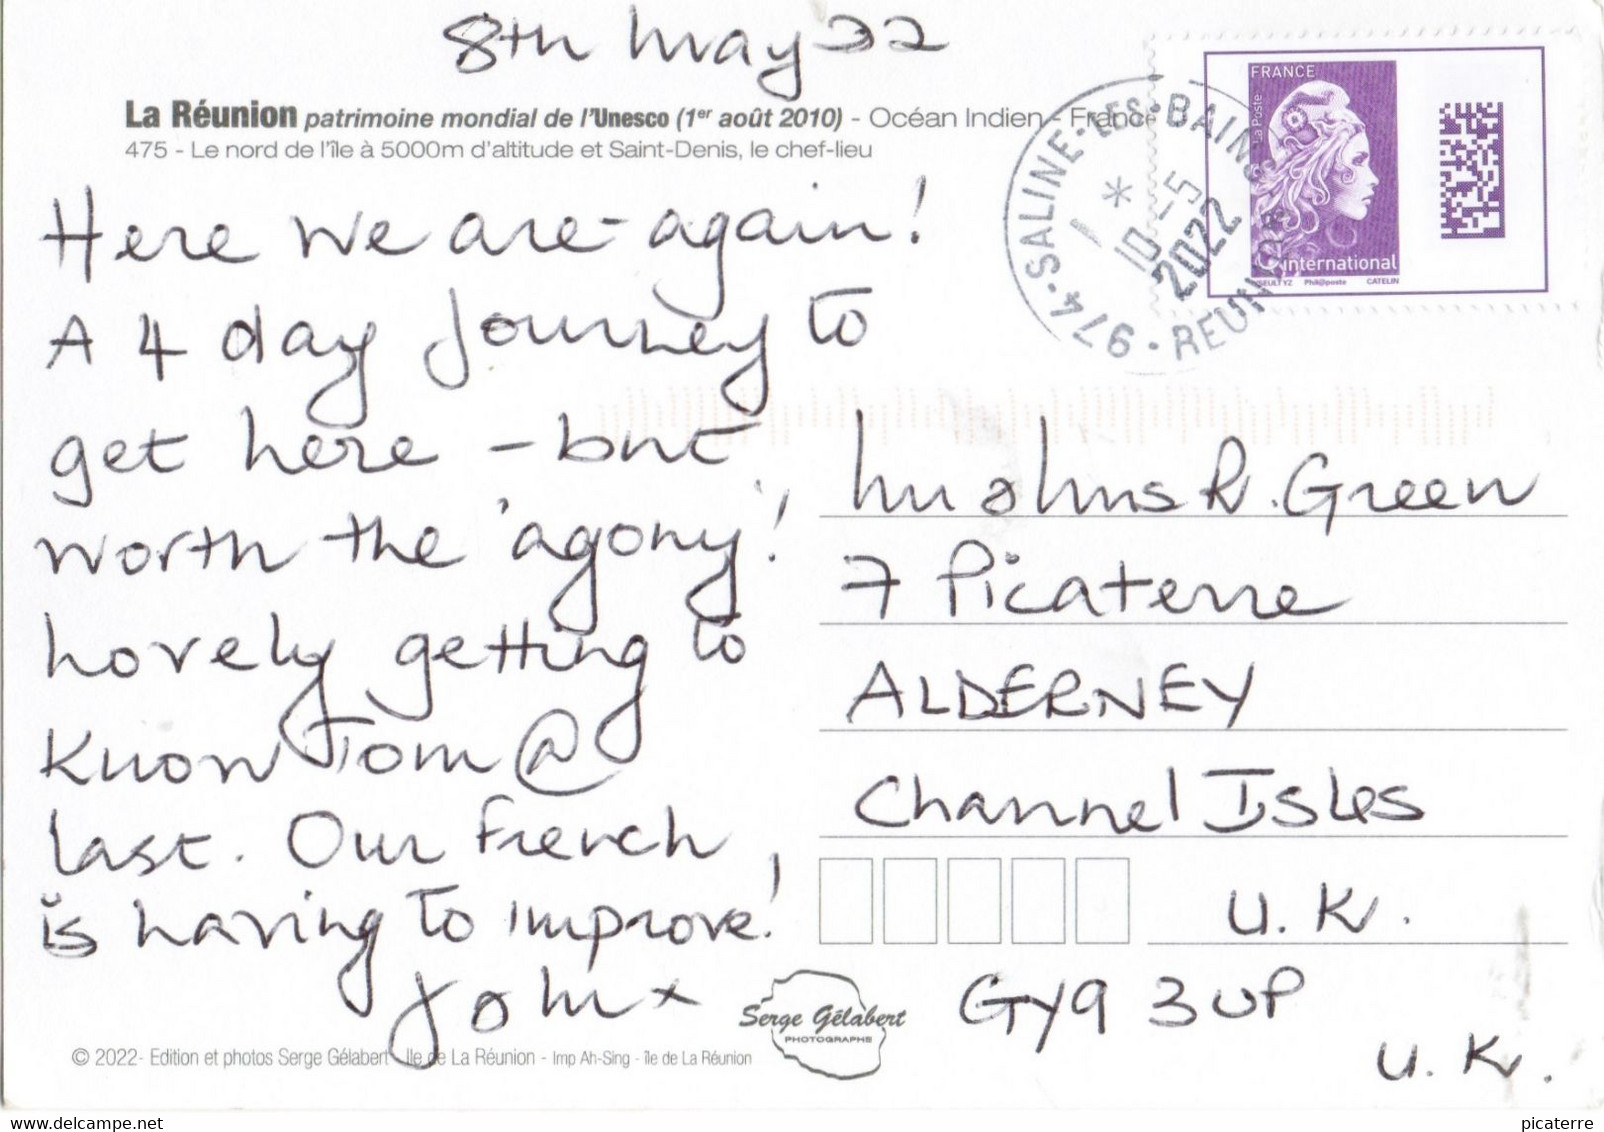 8th May 22
La Réunion patrimoine mondial de l'Unesco (1er août 2010) - Océan Indien - France
475 - Le nord de l'île à 5000m d'altitude et Saint-Denis, le chef-lieu
974 - SALINE-LES-BAINS REUNION
1 *
10-5
2022
FRANCE
La Poste
international
Phil@poste CATELIN
Here we are - again!
A 4 day journey to
get here - but
worth the 'agony'!
Lovely getting to
know Tom @
last. Our French
is having to improve!
John x
R. Green
7 Picaterre
ALDERNEY
Channel Isles
U.K.
GY9 3UP
U.K.
Serge Gélabert
PHOTOGRAPHE
© 2022- Edition et photos Serge Gélabert - Ile de La Réunion - Imp Ah-Sing - île de La Réunion
picaterre